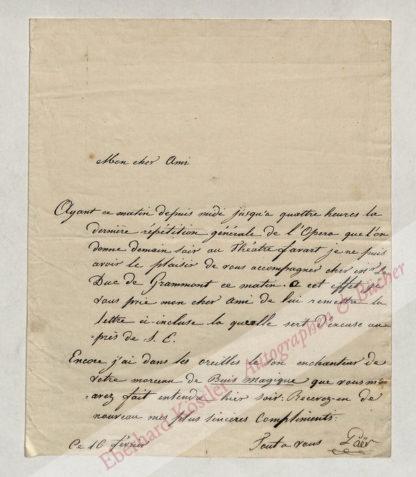 Mon cher Ami
Ayant ce matin depuis midi jusqu'a quattre heures la
dernière répétition générale de l'Opera que l'on
donne demain soir au Théatre favart je ne puis
avoir le plaisir de vous accompagner chez
Duc de Grammont ce matin. a cet effet je
vous prie mon cher ami de lui remettre la
lettre ci incluse la quelle sert d'excuse au-
près de S. E.
Encore j'ai dans les oreilles le son enchanteur de
votre morceau de Buis Magique que vous m'a-
avez fait entendre hier soir. Recevez-en de
nouveau mes plus sincères compliments.
Ce 16 février Tout a vous Paër
Eberhard Köstler Autographen & Bücher